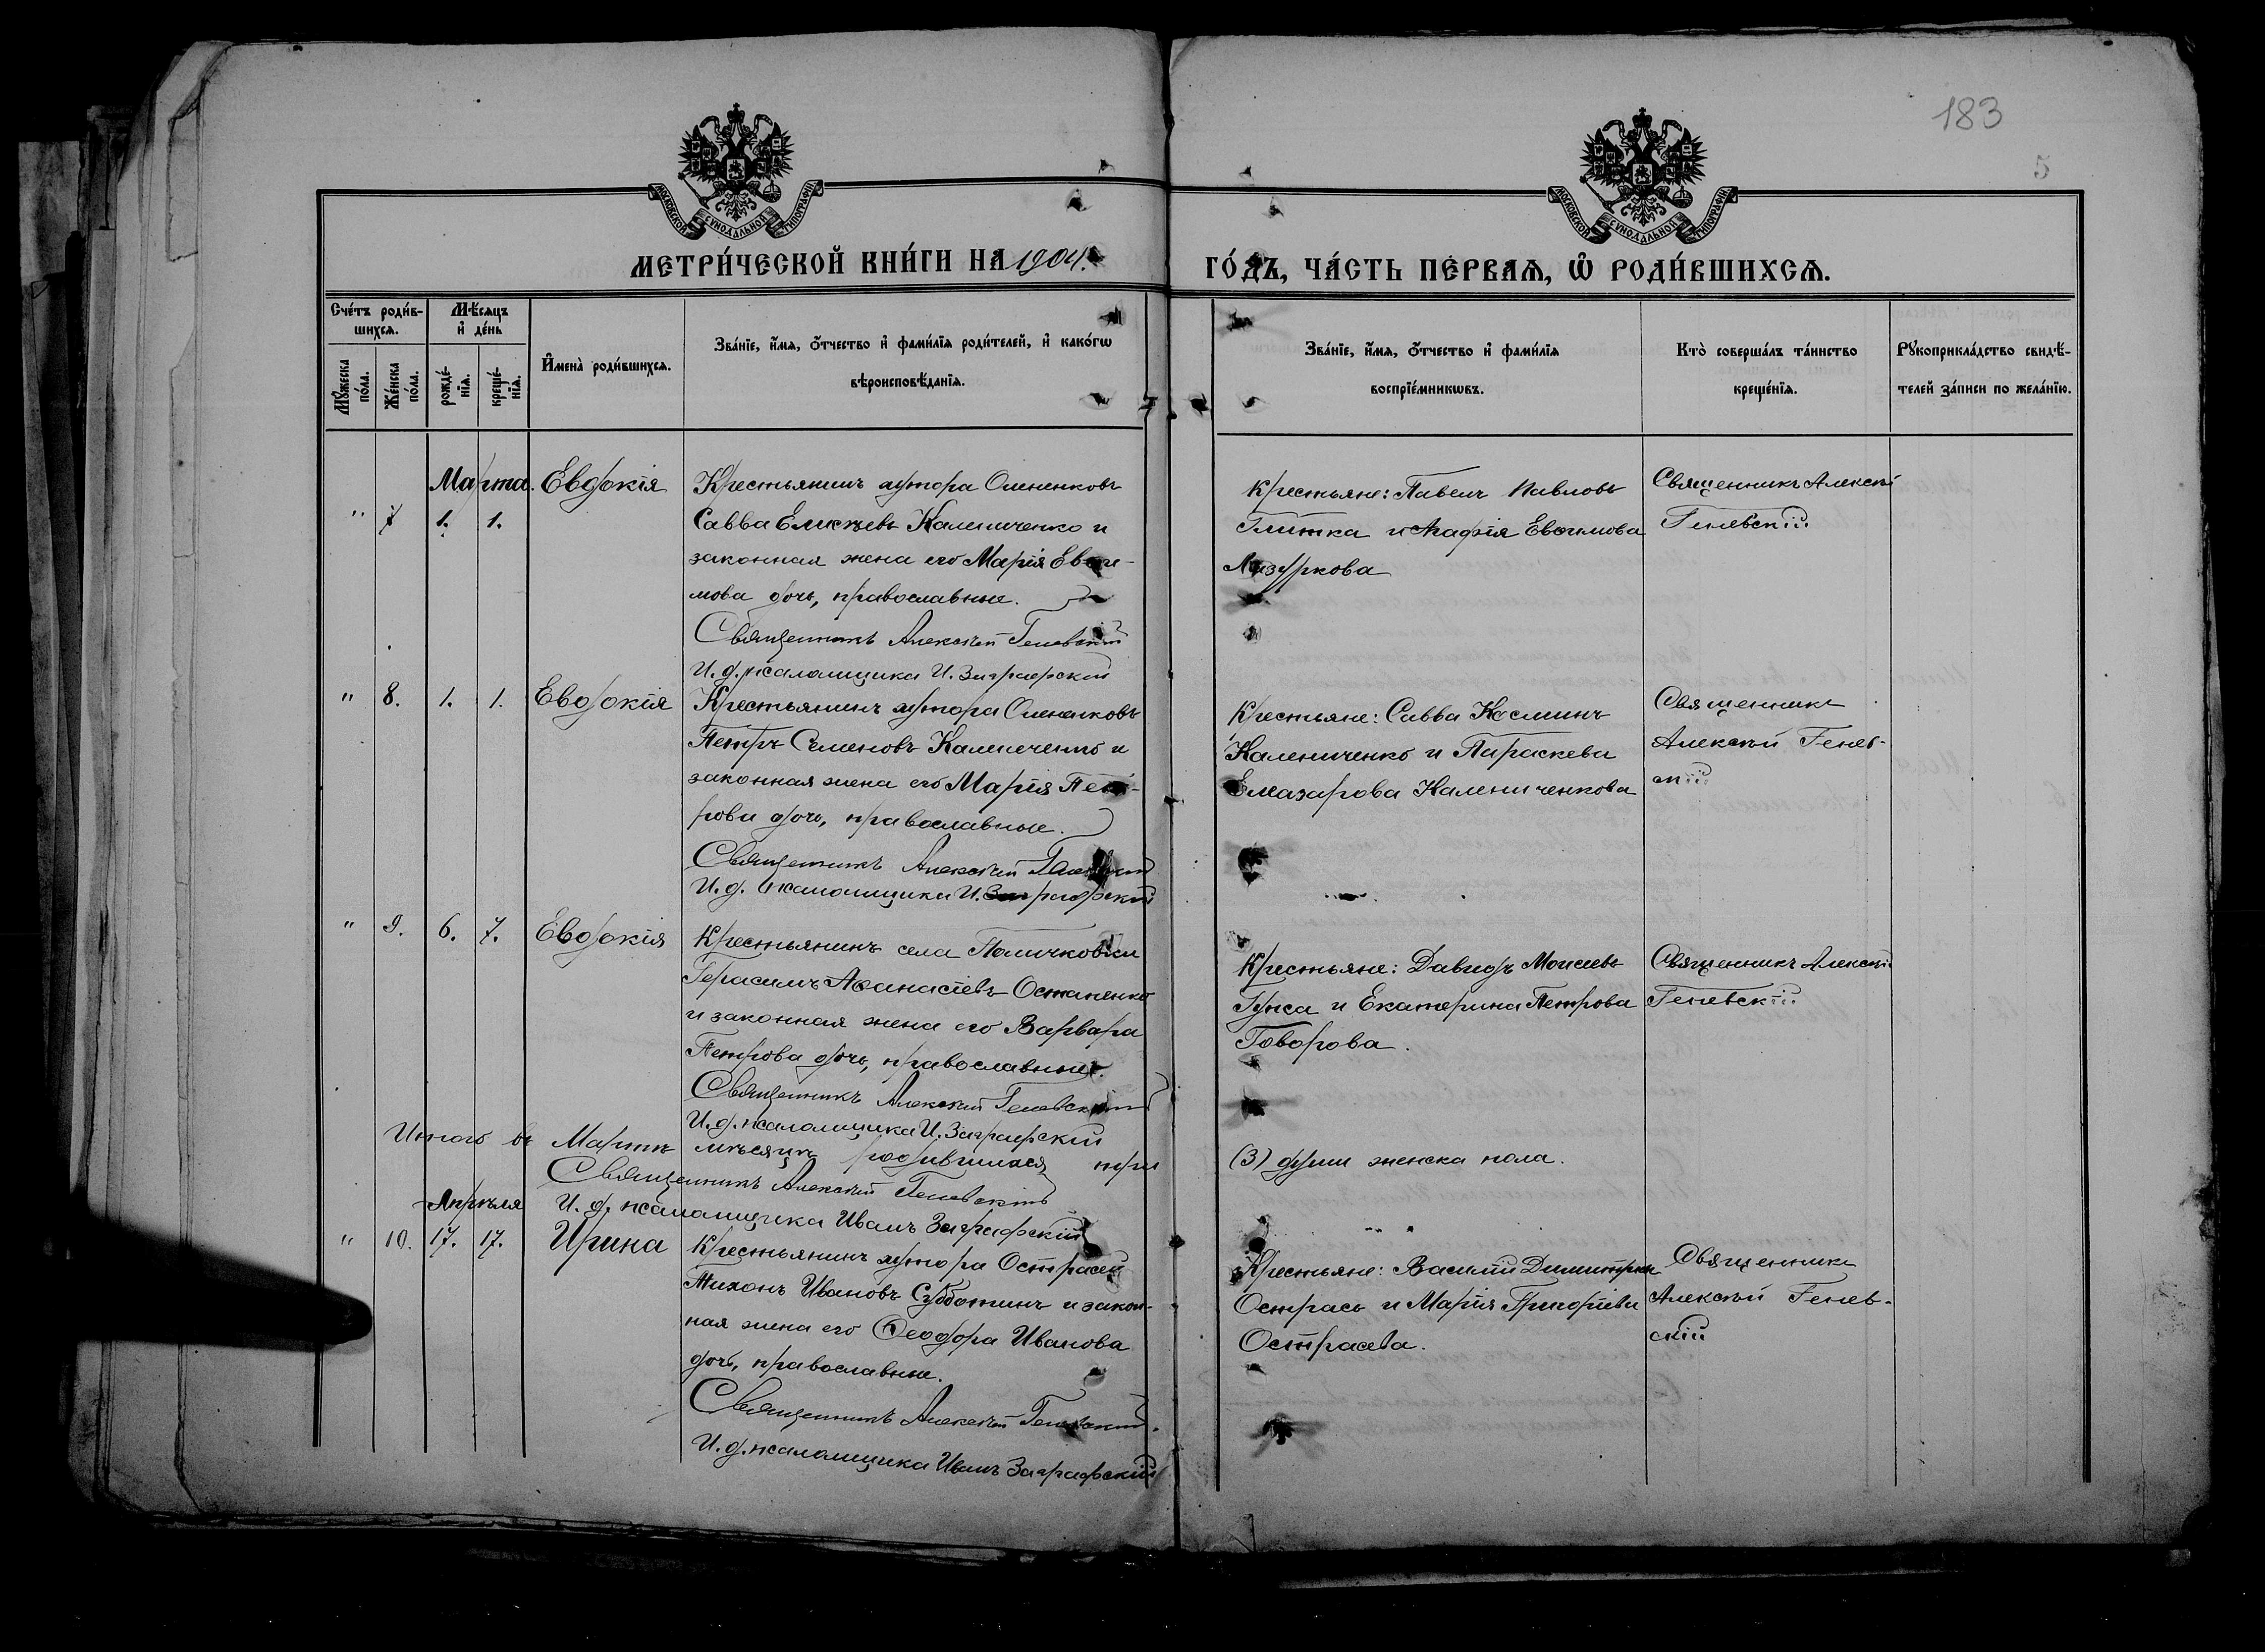 183
5
МОСКОВСКОЙ СѴНОДАЛЬНОЙ ТИПОГРАФІИ
МОСКОВСКОЙ СѴНОДАЛЬНОЙ ТИПОГРАФІИ
МЕТРИ́ЧЕСКОЙ КНИ́ГИ НА 1904.
ГО́ДЪ, ЧА́СТЬ ПЕ́РВАѦ, Ѡ҆ РОДИ́ВШИХСѦ.
Сче́тъ роди́в-
шихсѧ.
Мѣ́сѧцъ
и҆ де́нь
Мꙋ́жеска
по́ла.
Же́нска
по́ла.
рожде́-
нїѧ.
креще́-
нїѧ.
И҆мена̀ роди́вшихсѧ.
Зва́нїе, и҆́мѧ, ѻ҆́тчество и҆ фами́лїѧ роди́телей, и҆ како́гѡ
вѣроисповѣ́данїѧ.
Зва́нїе, и҆́мѧ, ѻ҆́тчество и҆ фами́лїѧ
воспрїе́мникѡвъ.
Кто̀ соверша́лъ та́инство
креще́нїѧ.
Рꙋкоприкла́дство свидѣ́-
телей за́писи по жела́нїю.
Марта. Евдокія Крестьянинъ хутора Олененковъ
" 7 1. 1. Савва Елисѣевъ Калениченко и
законная жена его Марія Евѳи-
мова дочь, православные.
Священникъ Алексѣй Геневскій
И. д. псаломщика И. Заграфскій
Крестьяне: Павелъ Павловъ
Глитка и Агафія Евѳимова
Мазуркова
Священникъ Алексѣй
Геневскій
" 8. 1. 1. Евдокія Крестьянинъ хутора Олененковъ
Петръ Семеновъ Калениченко и
законная жена его Марія Пет-
рова дочь, православные.
Священникъ Алексѣй Геневскій
И. д. псаломщика И. Заграфскій
Крестьяне: Савва Косминъ
Калениченко и Параскева
Елеазарова Калениченкова
Священникъ
Алексѣй Генев-
скій
" 9. 6. 7. Евдокія Крестьянинъ села Поличковки
Герасимъ Аѳанасіевъ Остапенко
и законная жена его Варвара
Петрова дочь, православные.
Священникъ Алексѣй Геневскій
И. д. псаломщика И. Заграфскій
Крестьяне: Давидъ Моисеевъ
Гуса и Екатерина Петрова
Говорова.
Священникъ Алексѣй
Геневскій
Итого въ Мартѣ мѣсяцѣ родившихся три
(3) души женска пола.
Священникъ Алексѣй Геневскій
И. д. псаломщика Иванъ Заграфскій
Апрѣля
" 10. 17. 17. Ирина Крестьянинъ хутора Острасей
Тихонъ Ивановъ Субботинъ и закон-
ная жена его Ѳеодора Иванова
дочь, православные.
Священникъ Алексѣй Геневскій.
И. д. псаломщика Иванъ Заграфскій
Крестьяне: Василій Димитріев
Острась и Марія Григоріева
Острасева.
Священникъ
Алексѣй Генев-
скій